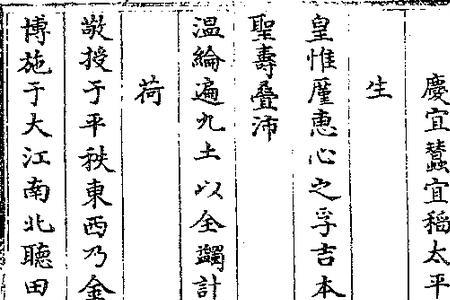 慶宜蠶宜稻太平
生
皇惟廑惠心之孚吉本
聖壽疊沛
溫綸遍九土以全蠲計
荷
敬授于平秩東西乃金
博施于大江南北聽田